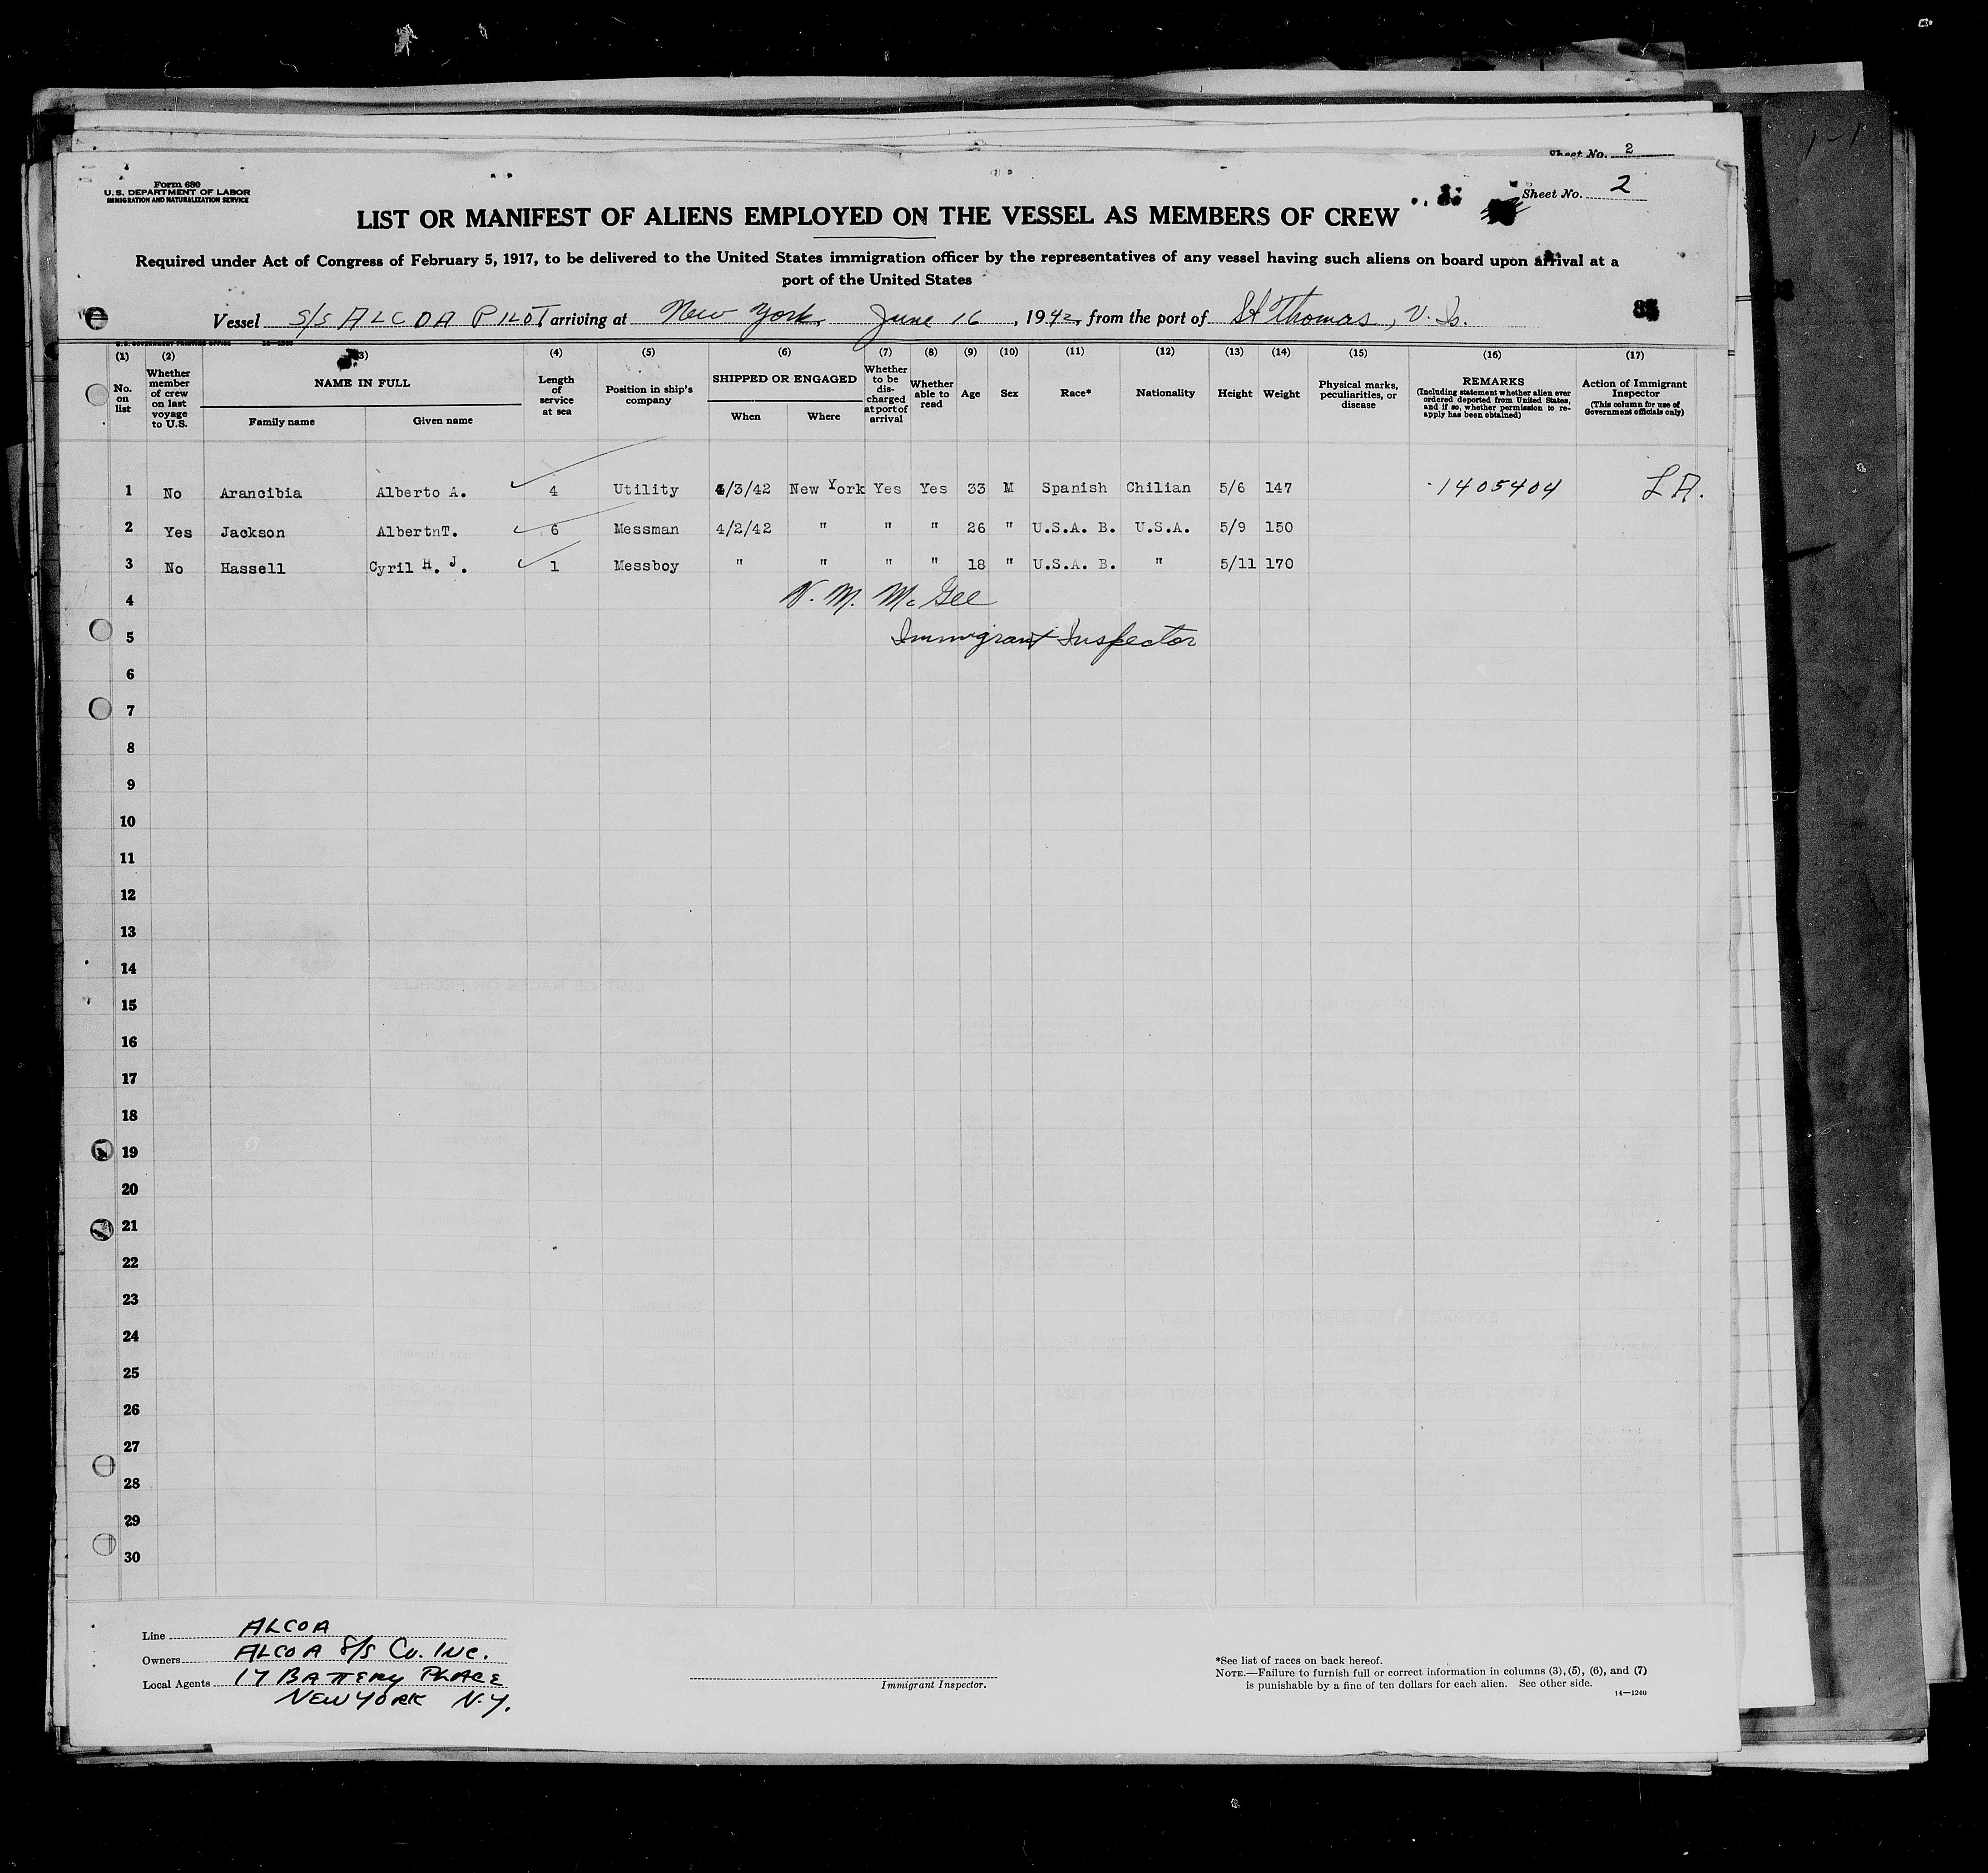 Sheet No. 2
Form 680
U.S. DEPARTMENT OF LABOR
IMMIGRATION AND NATURALIZATION SERVICE
Sheet No. 2
LIST OR MANIFEST OF ALIENS EMPLOYED ON THE VESSEL AS MEMBERS OF CREW
Required under Act of Congress of February 5, 1917, to be delivered to the United States immigration officer by the representatives of any vessel having such aliens on board upon arrival at a
port of the United States
Vessel S/S ALCOA PILOT arriving at New York, June 16, 1942, from the port of St. Thomas, V. Is.
U.S. GOVERNMENT PRINTING OFFICE
(1) (2) (3) (4) (5) (6) (7) (8) (9) (10) (11) (12) (13) (14) (15) (16) (17)
No. on list
Whether member of crew on last voyage to U.S.
NAME IN FULL
Family name Given name
Length of service at sea
Position in ship's company
SHIPPED OR ENGAGED
When Where
Whether to be discharged at port of arrival
Whether able to read
Age Sex Race* Nationality Height Weight
Physical marks, peculiarities, or disease
REMARKS
(Including statement whether alien ever ordered deported from United States, and if so, whether permission to reapply has been obtained)
Action of Immigrant Inspector
(This column for use of Government officials only)
1 No Arancibia Alberto A. 4 Utility 4/3/42 New York Yes Yes 33 M Spanish Chilian 5/6 147 1405404 L.A.
2 Yes Jackson AlbertnT. 6 Messman 4/2/42 " " " 26 " U.S.A. B. U.S.A. 5/9 150
3 No Hassell Cyril H. J. 1 Messboy " " " " 18 " U.S.A. B. " 5/11 170
4 N. M. McGee
5 Immigrant Inspector
6
7
8
9
10
11
12
13
14
15
16
17
18
19
20
21
22
23
24
25
26
27
28
29
30
Line ALCOA
Owners ALCOA S/S Co. INC.
Local Agents 17 BATTERY PLACE
NEW YORK N.Y.
Immigrant Inspector.
*See list of races on back hereof.
NOTE.—Failure to furnish full or correct information in columns (3), (5), (6), and (7)
is punishable by a fine of ten dollars for each alien. See other side.
14—1240